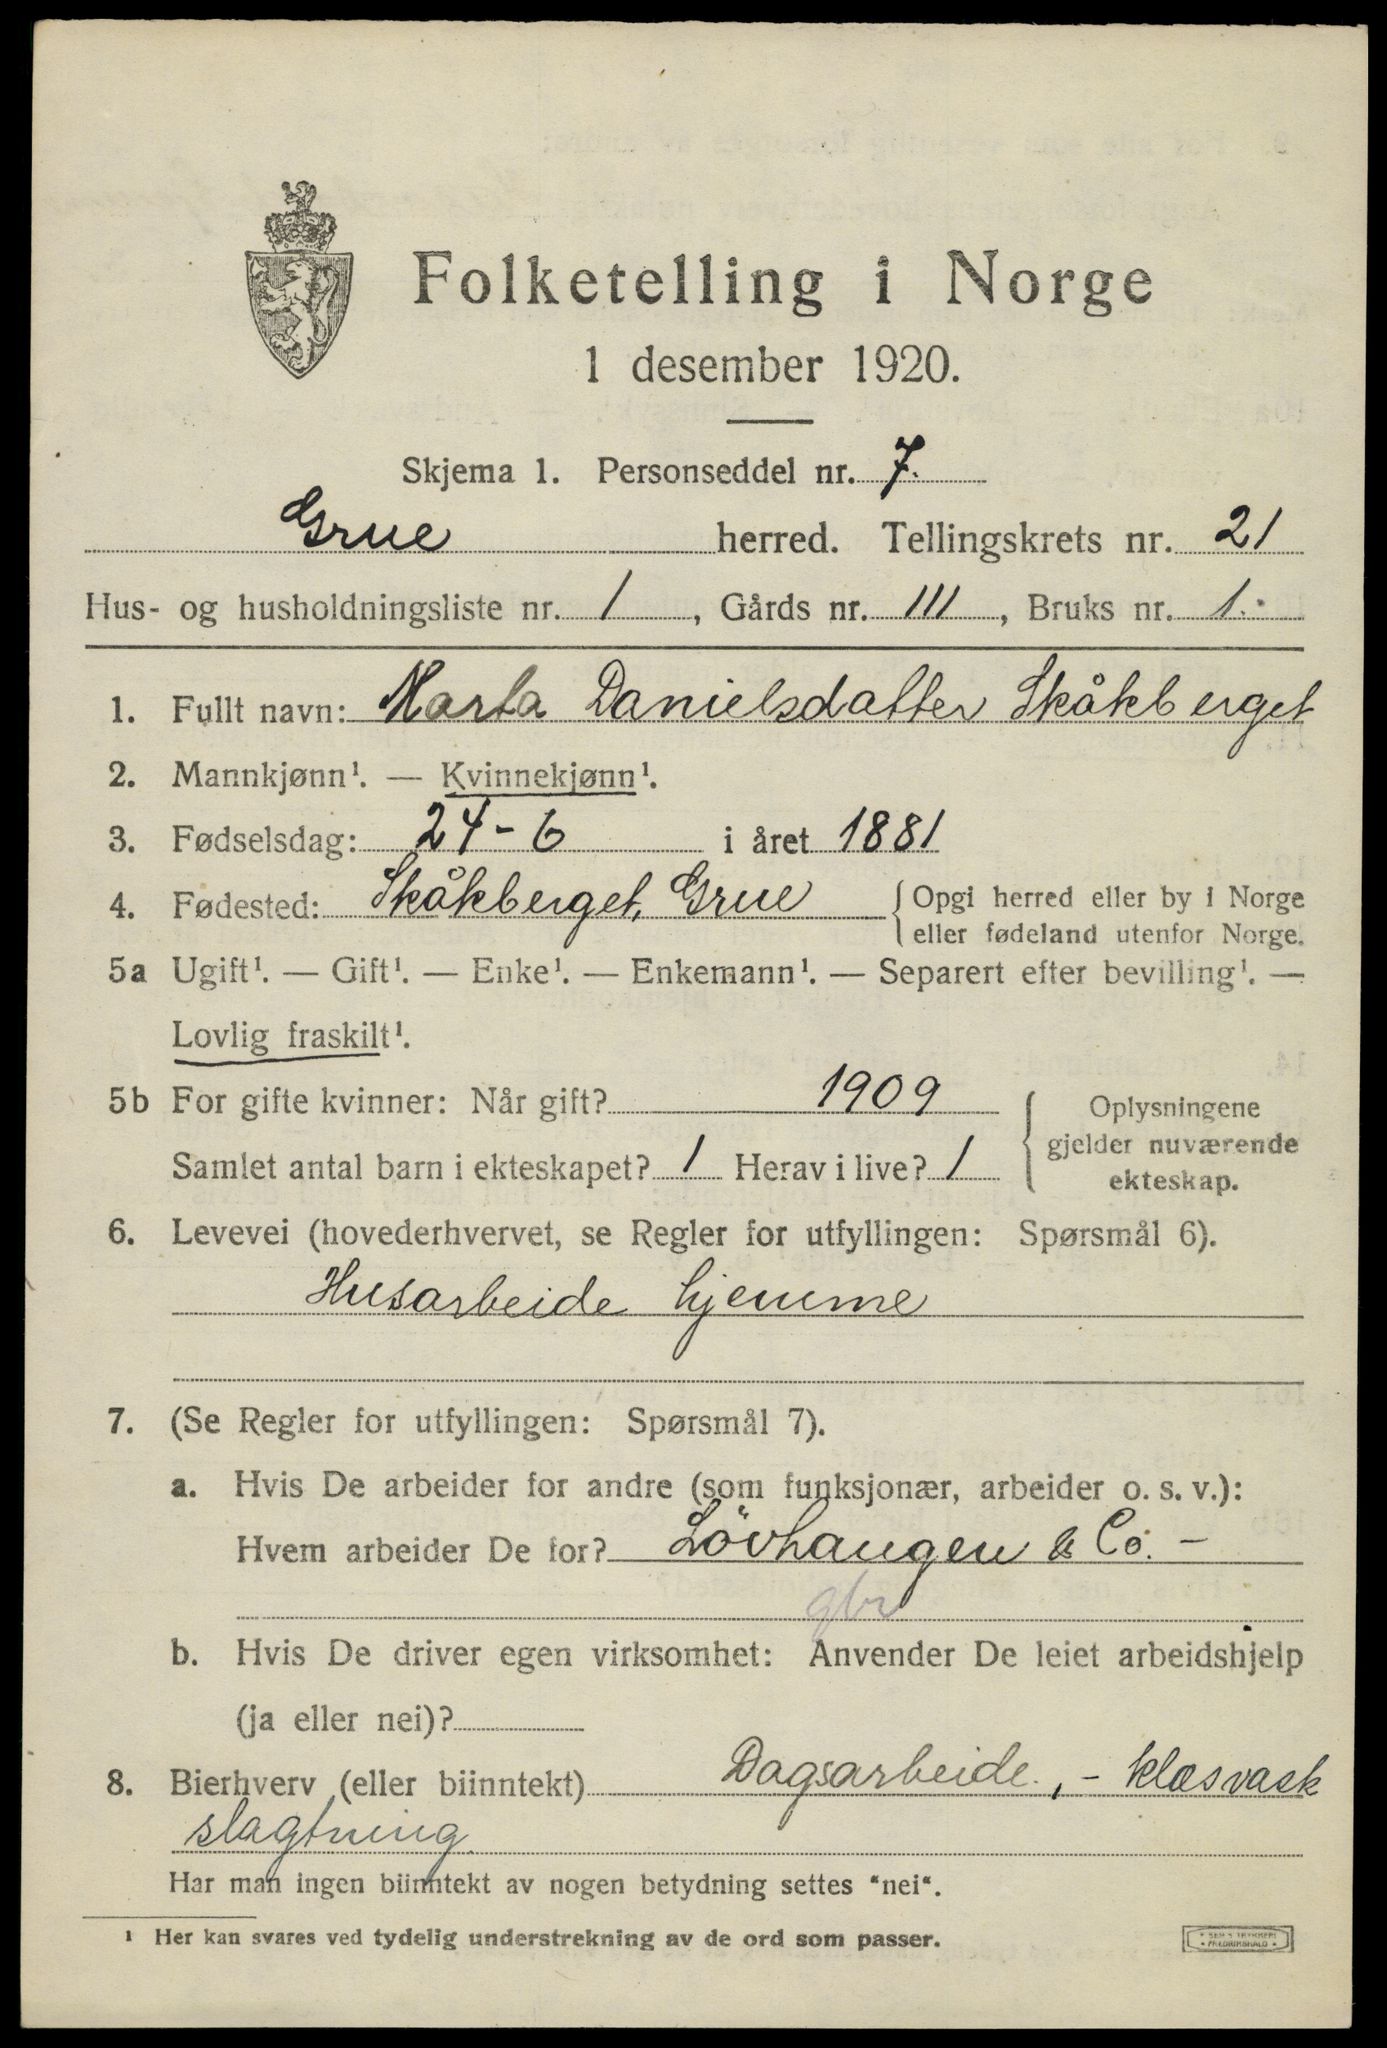 Folketelling i Norge
1 desember 1920.
Skjema 1. Personseddel nr. 7.
Grue herred. Tellingskrets nr. 21
Hus- og husholdningsliste nr. 1, Gårds nr. 111, Bruks nr. 1.
1. Fullt navn: Marta Danielsdatter Skåkberget
2. Mannkjønn¹. — Kvinnekjønn¹.
3. Fødselsdag: 24-6 i året 1881
4. Fødested: Skåkberget, Grue { Opgi herred eller by i Norge
eller fødeland utenfor Norge.
5a Ugift¹. — Gift¹. — Enke¹. — Enkemann¹. — Separert efter bevilling¹. —
Lovlig fraskilt¹.
5b For gifte kvinner: Når gift? 1909 { Oplysningene
gjelder nuværende
Samlet antal barn i ekteskapet? 1 Herav i live? 1 ekteskap.
6. Levevei (hovederhvervet, se Regler for utfyllingen: Spørsmål 6).
Husarbeide hjemme
7. (Se Regler for utfyllingen: Spørsmål 7).
a. Hvis De arbeider for andre (som funksjonær, arbeider o. s. v.):
Hvem arbeider De for? Lövhaugen & Co. -
gbr
b. Hvis De driver egen virksomhet: Anvender De leiet arbeidshjelp
(ja eller nei)?
8. Bierhverv (eller biinntekt) Dagsarbeide, - klæsvask
slagtning
Har man ingen biinntekt av nogen betydning settes "nei".
¹ Her kan svares ved tydelig understrekning av de ord som passer.